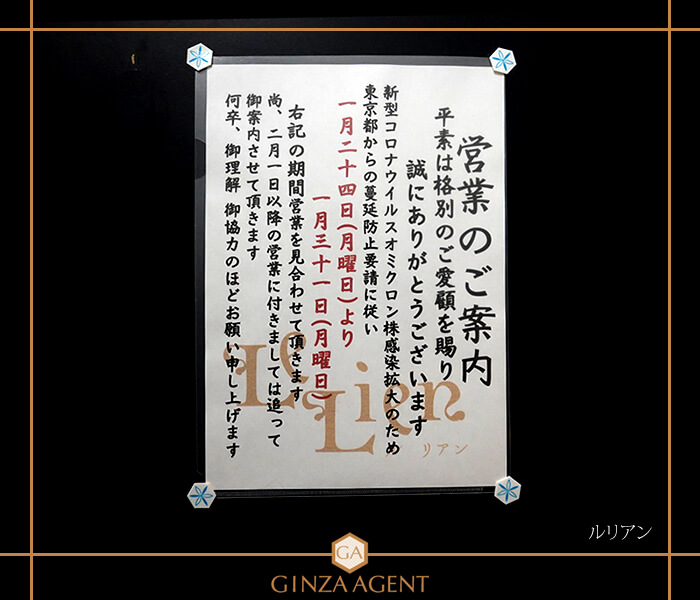 営業のご案内
平素は格別のご愛顧を賜り
誠にありがとうございます
新型コロナウイルスオミクロン株感染拡大のため
東京都からの蔓延防止要請に従い
一月二十四日(月曜日)より
一月三十一日(月曜日)
右記の期間営業を見合わせて頂きます
尚、二月一日以降の営業に付きましては追って
御案内させて頂きます
何卒、御理解 御協力のほどお願い申し上げます
Le
Lien
リアン
ルリアン
GA
GINZA AGENT